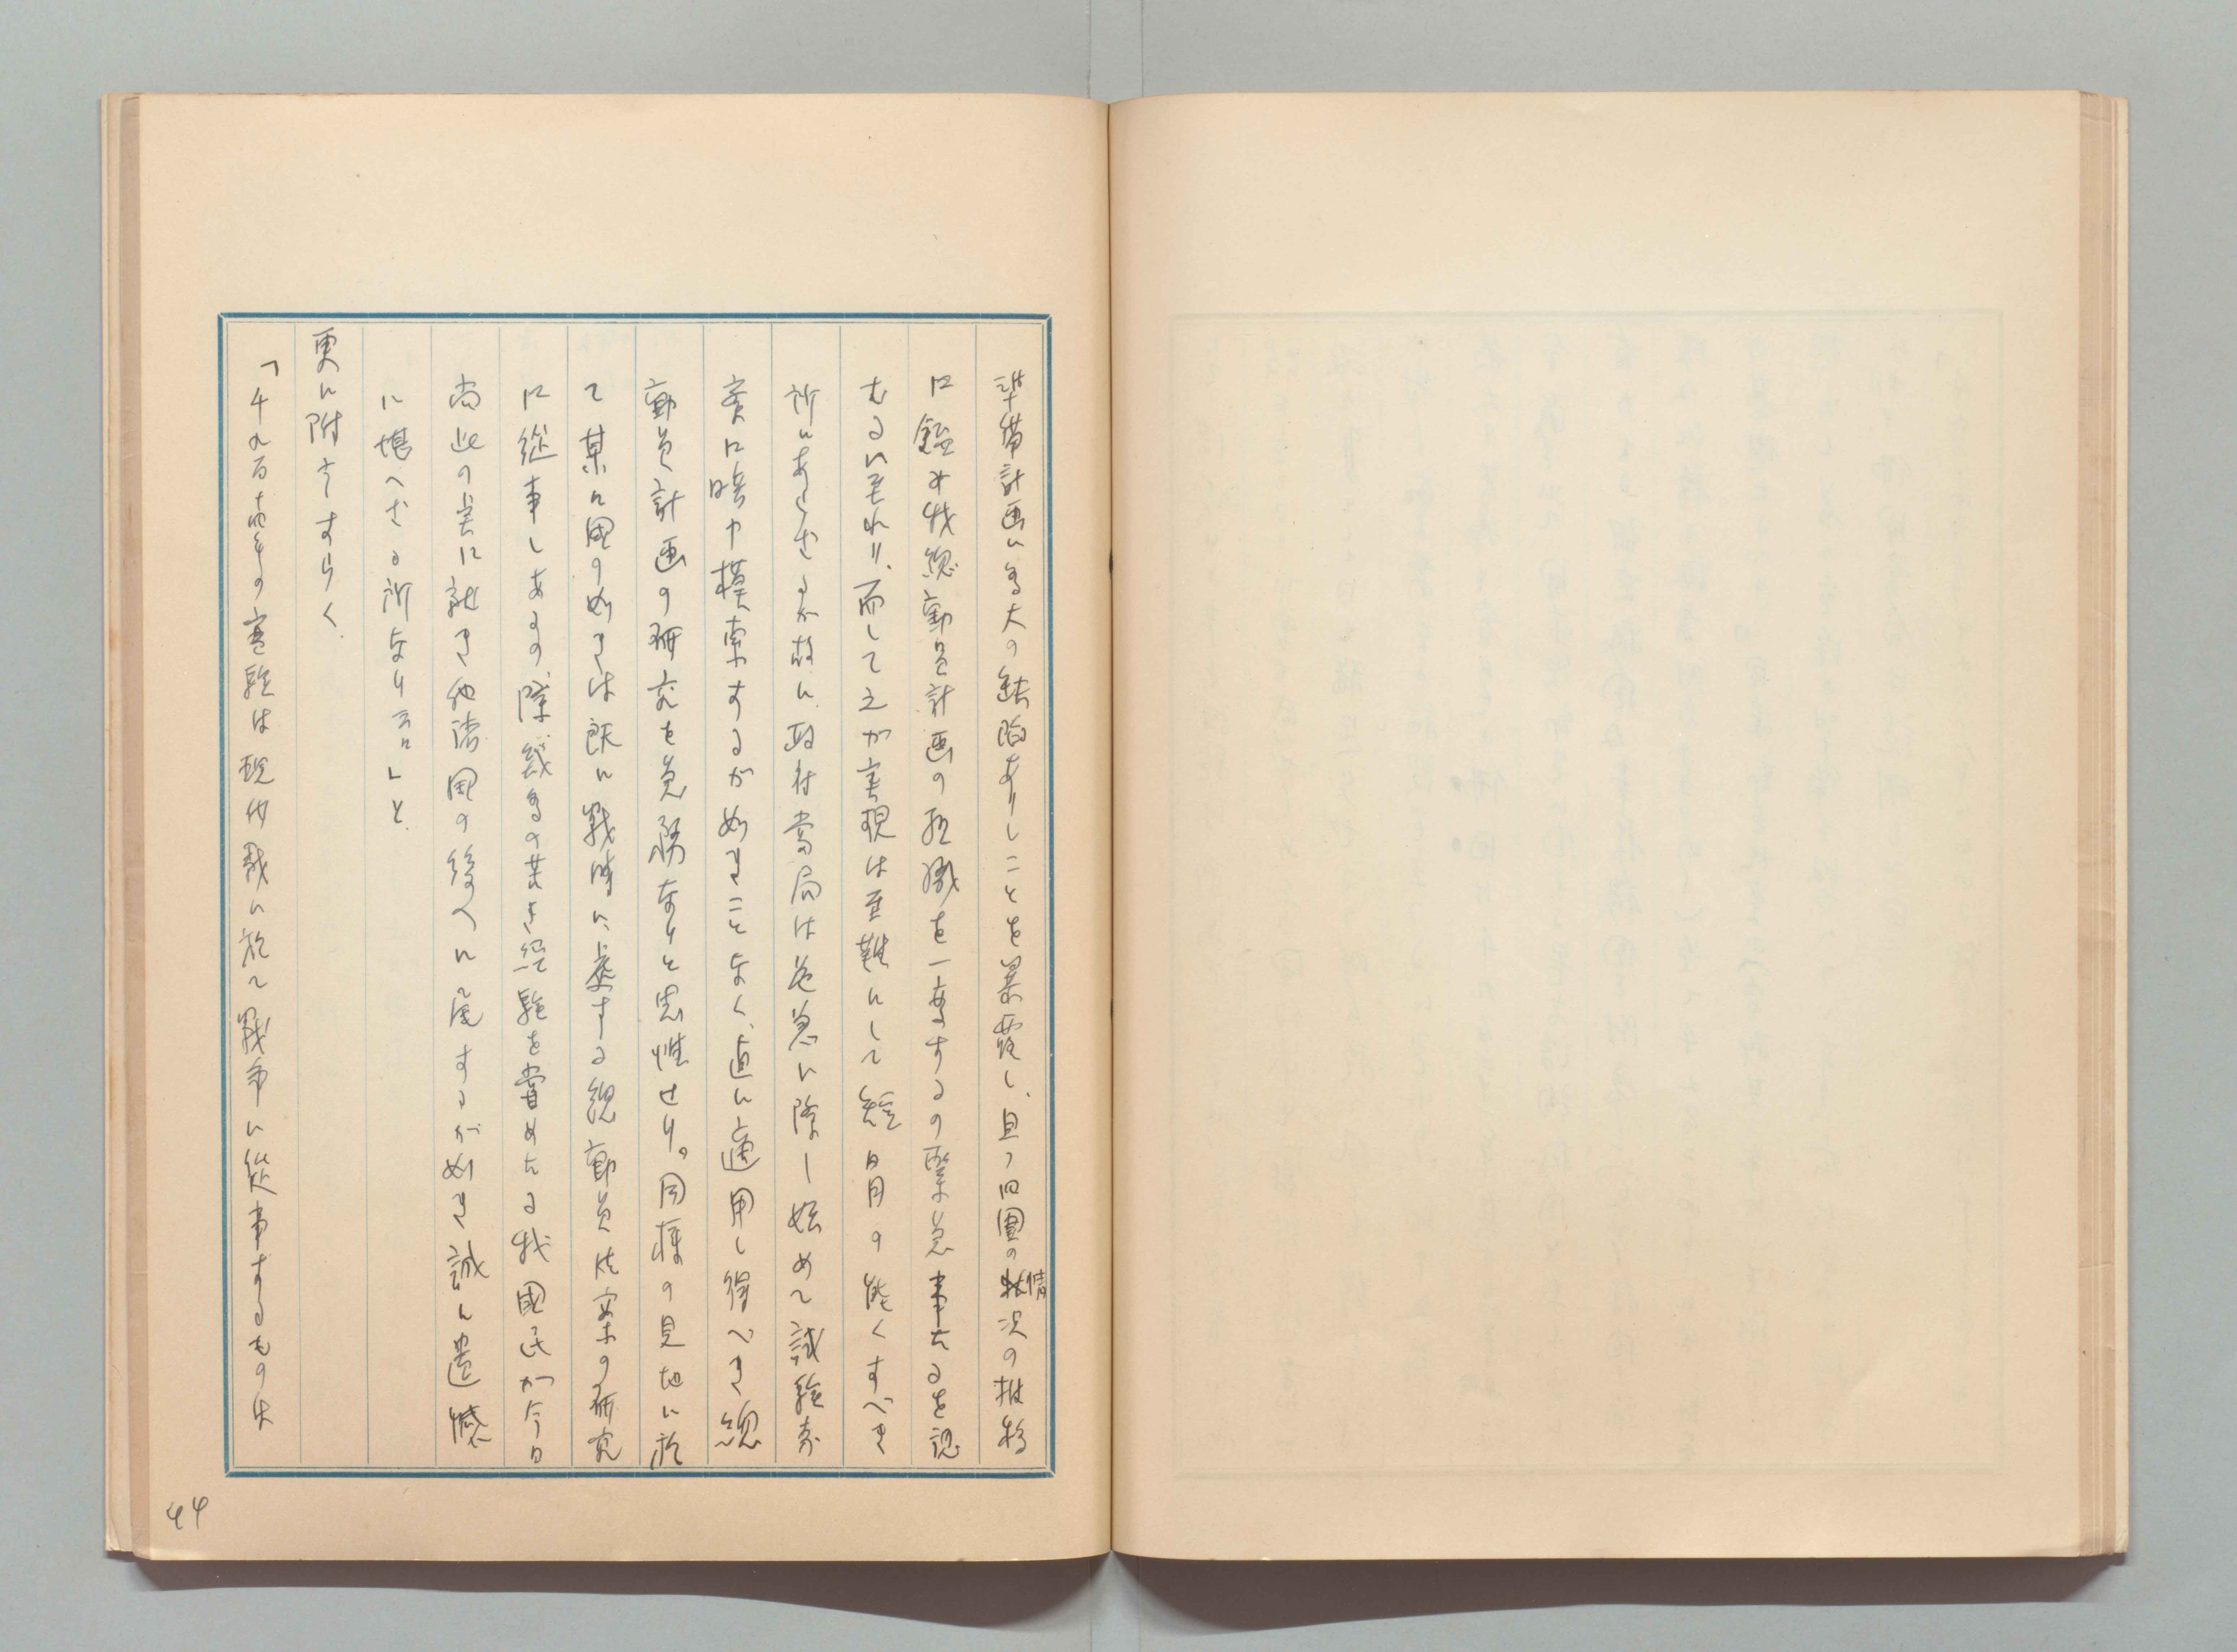 準備計画に多大の缺陥ありしことを暴露し、且つ四圍の情況の推移
に鑑み我総動員計画の組織を一変するの緊急事たるを認
むるに至れり、而して之が実現は至難にして短日月の能くすべき
所にあらざるが故に政府当局は危急に際し始めて試験
に暗中模索するが如きことなく、直に適用し得べき総
動員計画の研究を急務なりと思惟せり。同様の見地に於
て某々国の如きは既に戦時に処する総動員法案の研究
に従事しあるの際幾多の苦き経験を嘗めたる我國民が今日
尚此の実に就き他諸国の後へに尾するが如き誠に遺憾
に堪へざる所なり云々」と
更に附言すらく
「千九百十四年の実験は現代戦に於て戦争に従事するものは
44